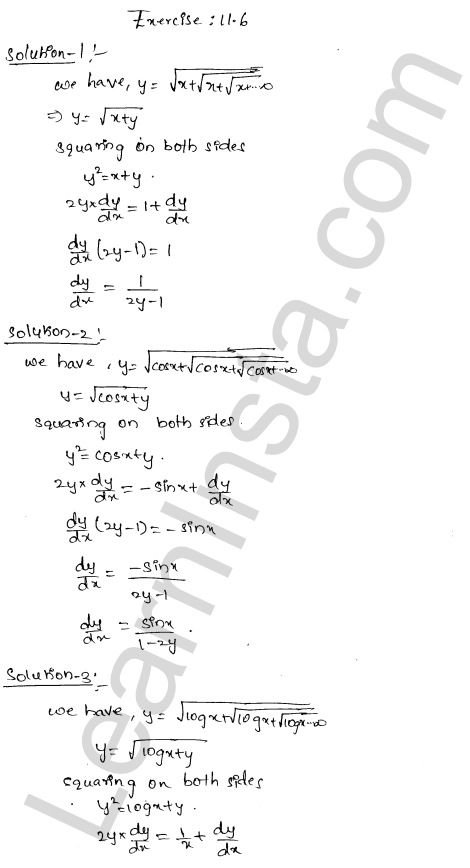 Exercise : 11.6
Solution-1:-
We have, y = √x+√x+√x+...∞
⇒ y = √x+y
Squaring on both sides
y² = x+y.
2y × dy/dx = 1 + dy/dx
dy/dx (2y-1) = 1
dy/dx = 1/2y-1
Solution-2:-
We have, y = √cosx+√cosx+√cosx+...∞
y = √cosx+y
Squaring on both sides.
y² = cosx+y.
2y × dy/dx = -sinx + dy/dx
dy/dx (2y-1) = -sinx
dy/dx = -sinx/2y-1
dy/dx = sinx/1-2y.
Solution-3:-
We have, y = √logx+√logx+√logx...∞
y = √logx+y
Squaring on both sides
y² = logx+y.
2y × dy/dx = 1/x + dy/dx
LearnInsta.com